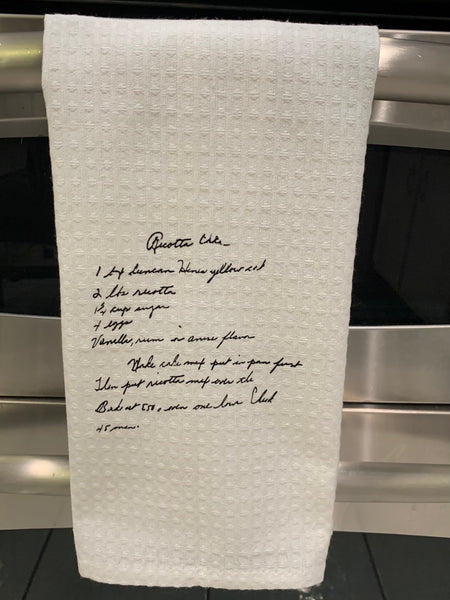 Ricotta Cake
1 bx Duncan Hines yellow
2 lbs ricotta
cup sugar
4 eggs
Vanilla, rum or anise flavor
Make cake mix put in pan first
Then put ricotta mix over
Bake at 350, oven one hour Check
45 min.